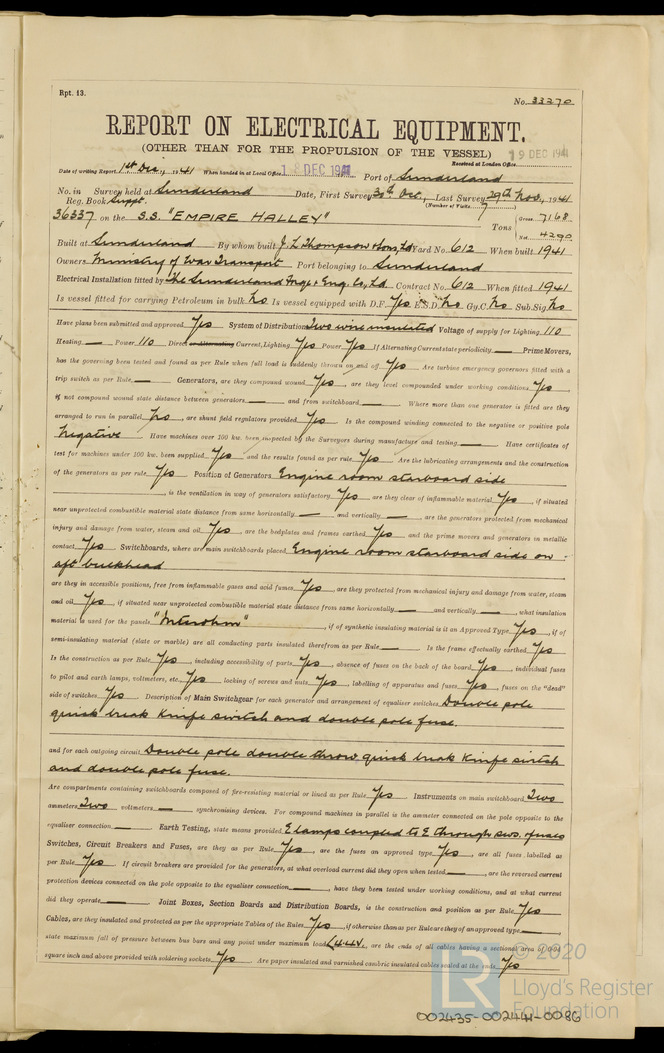 Rpt. 13.
No. 33270
REPORT ON ELECTRICAL EQUIPMENT.
(OTHER THAN FOR THE PROPULSION OF THE VESSEL)
19 DEC 1941
Date of writing Report 1st Dec., 1941 When handed in at Local Office 18 DEC 1941 Port of Sunderland Received at London Office
No. in Survey held at Sunderland Date, First Survey 30th Oct., Last Survey 29th Nov., 1941
Reg. Book Suppt. (Number of Visits 7)
36337 on the S.S. "EMPIRE HALLEY" Tons Gross 7168 Net 4290
Built at Sunderland By whom built J. L. Thompson & Sons, Ld Yard No. 612 When built 1941
Owners Ministry of War Transport Port belonging to Sunderland
Electrical Installation fitted by The Sunderland Forge & Eng. Co., Ld. Contract No. 612 When fitted 1941
Is vessel fitted for carrying Petroleum in bulk No Is vessel equipped with D.F. Yes E.S.D. No Gy.C. No Sub.Sig. No
Have plans been submitted and approved Yes System of Distribution Two wire insulated Voltage of supply for Lighting 110
Heating — Power 110 Direct or Alternating Current, Lighting Yes Power Yes If Alternating Current state periodicity — Prime Movers,
has the governing been tested and found as per Rule when full load is suddenly thrown on and off Yes Are turbine emergency governors fitted with a
trip switch as per Rule — Generators, are they compound wound Yes, are they level compounded under working conditions Yes,
if not compound wound state distance between generators — and from switchboard — Where more than one generator is fitted are they
arranged to run in parallel No, are shunt field regulators provided Yes Is the compound winding connected to the negative or positive pole
Negative Have machines over 100 kw. been inspected by the Surveyors during manufacture and testing — Have certificates of
test for machines under 100 kw. been supplied Yes and the results found as per rule Yes Are the lubricating arrangements and the construction
of the generators as per rule Yes Position of Generators Engine room starboard side
, is the ventilation in way of generators satisfactory Yes are they clear of inflammable material Yes, if situated
near unprotected combustible material state distance from same horizontally — and vertically —, are the generators protected from mechanical
injury and damage from water, steam and oil Yes, are the bedplates and frames earthed Yes and the prime movers and generators in metallic
contact Yes Switchboards, where are main switchboards placed Engine room starboard side on
aft bulkhead
are they in accessible positions, free from inflammable gases and acid fumes Yes, are they protected from mechanical injury and damage from water, steam
and oil Yes, if situated near unprotected combustible material state distance from same horizontally — and vertically —, what insulation
material is used for the panels "Interohm", if of synthetic insulating material is it an Approved Type Yes, if of
semi-insulating material (slate or marble) are all conducting parts insulated therefrom as per Rule — Is the frame effectually earthed Yes
Is the construction as per Rule Yes, including accessibility of parts Yes, absence of fuses on the back of the board Yes, individual fuses
to pilot and earth lamps, voltmeters, etc. Yes locking of screws and nuts Yes, labelling of apparatus and fuses Yes, fuses on the "dead"
side of switches Yes Description of Main Switchgear for each generator and arrangement of equaliser switches Double pole
quick break Knife switch and double pole fuse.
and for each outgoing circuit Double pole double throw quick break Knife switch
and double pole fuse.
Are compartments containing switchboards composed of fire-resisting material or lined as per Rule Yes Instruments on main switchboard Two
ammeters Two voltmeters — synchronising devices. For compound machines in parallel is the ammeter connected on the pole opposite to the
equaliser connection — Earth Testing, state means provided E lamps coupled to E through sws. & fuses
Switches, Circuit Breakers and Fuses, are they as per Rule Yes, are the fuses an approved type Yes, are all fuses labelled as
per Rule Yes If circuit breakers are provided for the generators, at what overload current did they open when tested —, are the reversed current
protection devices connected on the pole opposite to the equaliser connection —, have they been tested under working conditions, and at what current
did they operate — Joint Boxes, Section Boards and Distribution Boards, is the construction and position as per Rule Yes
Cables, are they insulated and protected as per the appropriate Tables of the Rules Yes, if otherwise than as per Rule are they of an approved type —
state maximum fall of pressure between bus bars and any point under maximum load 4.4V, are the ends of all cables having a sectional area of 0.04
square inch and above provided with soldering sockets Yes Are paper insulated and varnished cambric insulated cables sealed at the ends Yes
© 2020
LR
Lloyd's Register
Foundation
002435-002441-0086